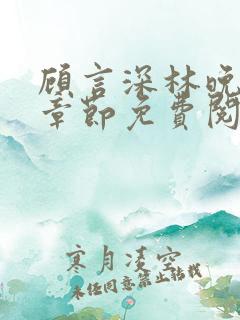 顾言深林晚
章节免费阅
寒月凌空
未经同意禁止转载